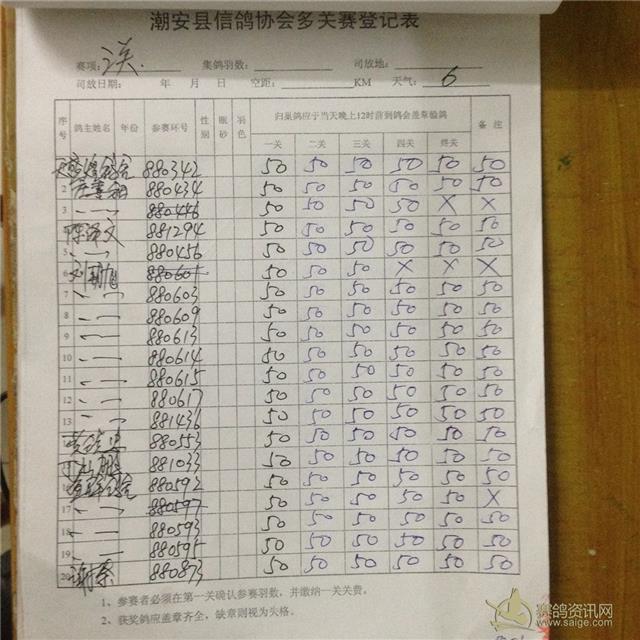 潮安县信鸽协会多关赛登记表
赛项: 集鸽羽数: 司放地:
司放日期: 年 月 日 空距: KM 天气: 6
序号 鸽主姓名 年份 参赛环号 性别 眼砂 羽色 归巢鸽应于当天晚上12时前到鸽会盖章验鸽 备注
一关 二关 三关 四关 终关
880342 50 50 50 50 50 50
2 880434 50 50 50 50 50 50
3 880446 50 50 50 50 X X
陈泽文 881294 50 50 50 50 50 50
5 880456 50 50 50 50 50 50
880601 50 50 50 X X X
7 880603 50 50 50 50 50 50
8 880609 50 50 50 50 50 50
9 880613 50 50 50 50 50 50
10 880614 50 50 50 50 50 50
11 880615 50 50 50 50 50 50
12 880617 50 50 50 50 50 50
13 881436 50 50 50 50 50 50
880553 50 50 50 50 50 50
881033 50 50 50 50 50 50
880592 50 50 50 50 50 50
17 880597 50 50 50 50 50 X
18 880593 50 50 50 50 50 50
19 880595 50 50 50 50 50 50
20 880873 50 50 50 50 50 50
1、参赛者必须在第一关确认参赛羽数，并缴纳一关关费。
2、获奖鸽应盖章齐全，缺章则视为失格。
赛鸽资讯网
www.saige.com